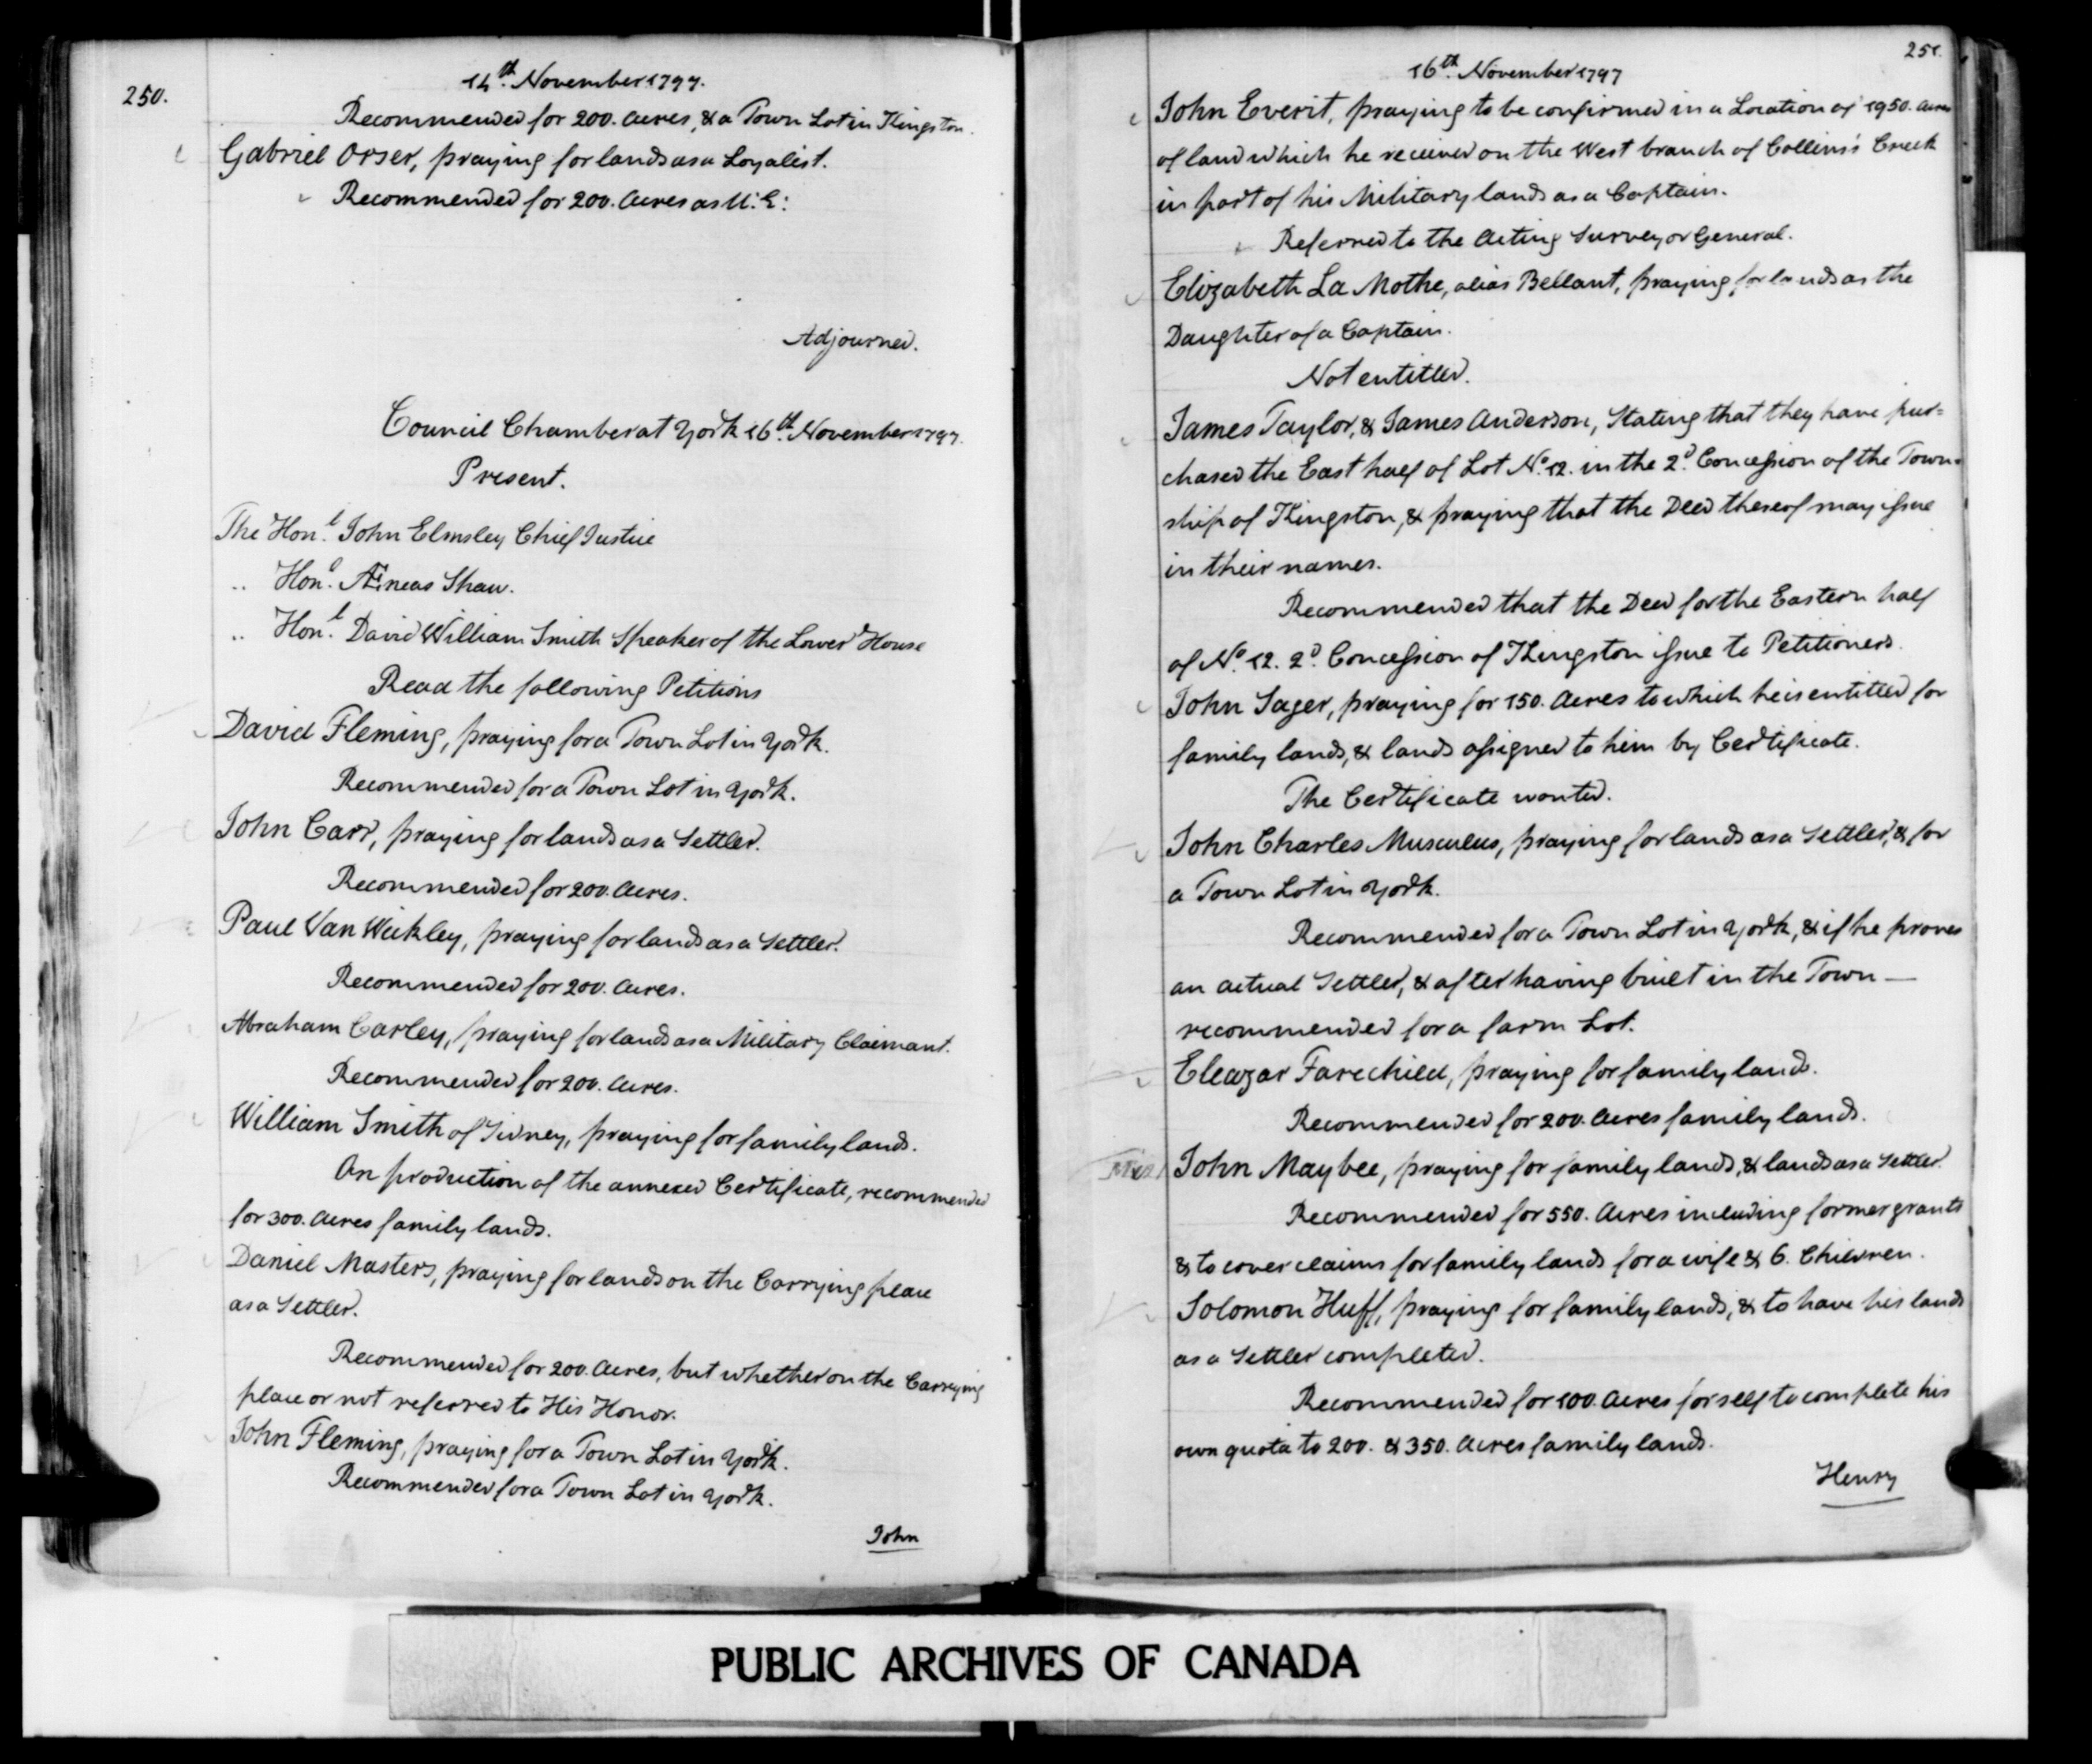 250.
14th. November 1797.
Recommended for 200. Acres, & a Town Lot in Kingston.
Gabriel Orser, praying for lands as a Loyalist.
Recommended for 200. Acres as U: E:
Adjourned.
Council Chamber at York 16th. November 1797.
Present.
The Honl. John Elmsley Chief Justice
.. Honl. Æneas Shaw.
.. Honl. David William Smith Speaker of the Lower House
Read the following Petitions
David Fleming, praying for a Town Lot in York.
Recommended for a Town Lot in York.
John Carr, praying for lands as a Settler.
Recommended for 200. Acres.
Paul Van Wickley, praying for lands as a Settler.
Recommended for 200. Acres.
Abraham Carley, praying for lands as a Military Claimant.
Recommended for 200. Acres.
William Smith of Sidney, praying for family lands.
On production of the annexed Certificate, recommended
for 300. Acres family lands.
Daniel Masters, praying for lands on the Carrying place
as a Settler.
Recommended for 200. Acres, but whether on the Carrying
place or not referred to His Honor.
John Fleming, praying for a Town Lot in York.
Recommended for a Town Lot in York.
John
251.
16th. November 1797
John Everit, praying to be confirmed in a Location of 1950. Acres
of land which he received on the West branch of Collins's Creek
in part of his Military lands as a Captain.
Referred to the Acting Surveyor General.
Elizabeth La Mothe, alias Bellant, praying for lands as the
Daughter of a Captain.
Not entitled.
James Taylor, & James Anderson, Stating that they have pur=
chased the East half of Lot No. 12. in the 2d. Concession of the Town=
ship of Kingston, & praying that the Deed thereof may issue
in their names.
Recommended that the Deed for the Eastern half
of No. 12. 2d. Concession of Kingston issue to Petitioners.
John Sager, praying for 150. Acres to which he is entitled for
family lands, & lands assigned to him by Certificate.
The Certificate wanted.
John Charles Musculus, praying for lands as a Settler, & for
a Town Lot in York.
Recommended for a Town Lot in York, & if he proves
an actual Settler, & after having built in the Town —
recommended for a farm Lot.
Eleazar Farechild, praying for family lands.
Recommended for 200. Acres family lands.
John Maybee, praying for family lands, & lands as a Settler.
Recommended for 550. Acres including former grants
& to cover claims for family lands for a wife & 6. Children.
Solomon Huff, praying for family lands, & to have his lands
as a Settler completed.
Recommended for 100. Acres for self to complete his
own quota to 200. & 350. Acres family lands.
Henry
PUBLIC ARCHIVES OF CANADA